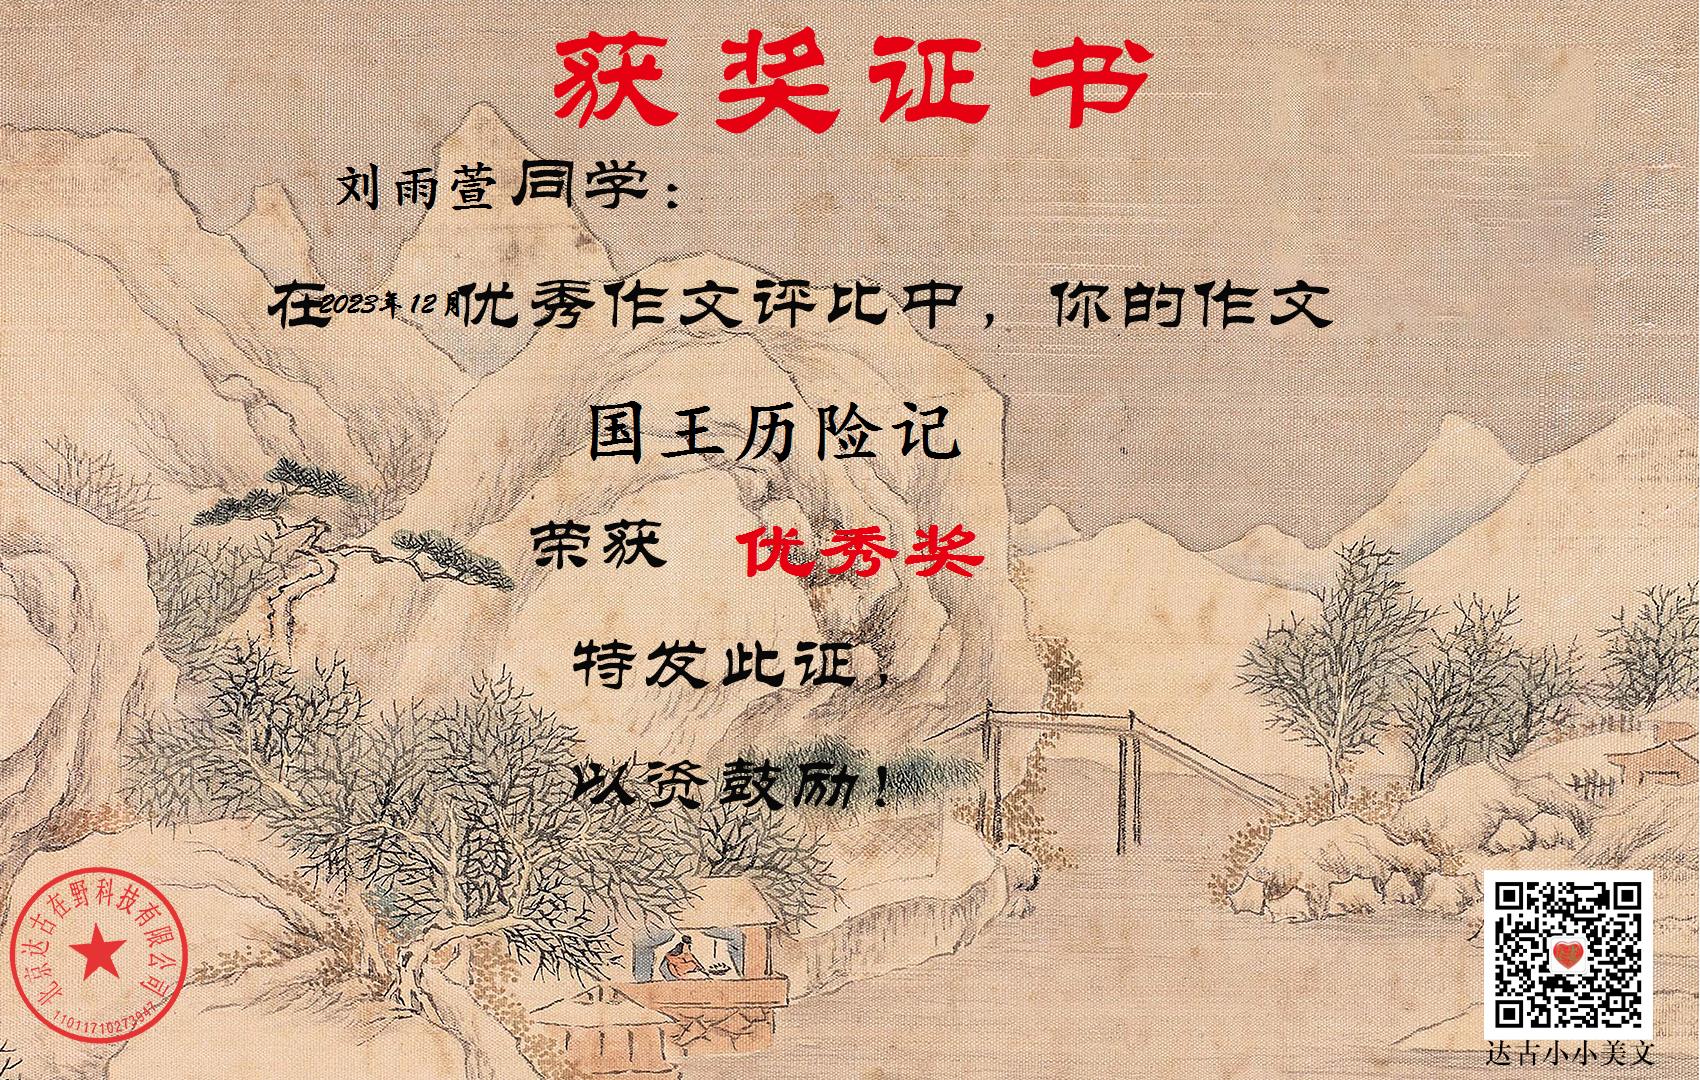 获奖证书
刘雨萱同学：
在2023年12月优秀作文评比中，你的作文
国王历险记
荣获 优秀奖
特发此证，
以资鼓励！
北京达古在野科技有限公司
11011710273947
达古小小美文